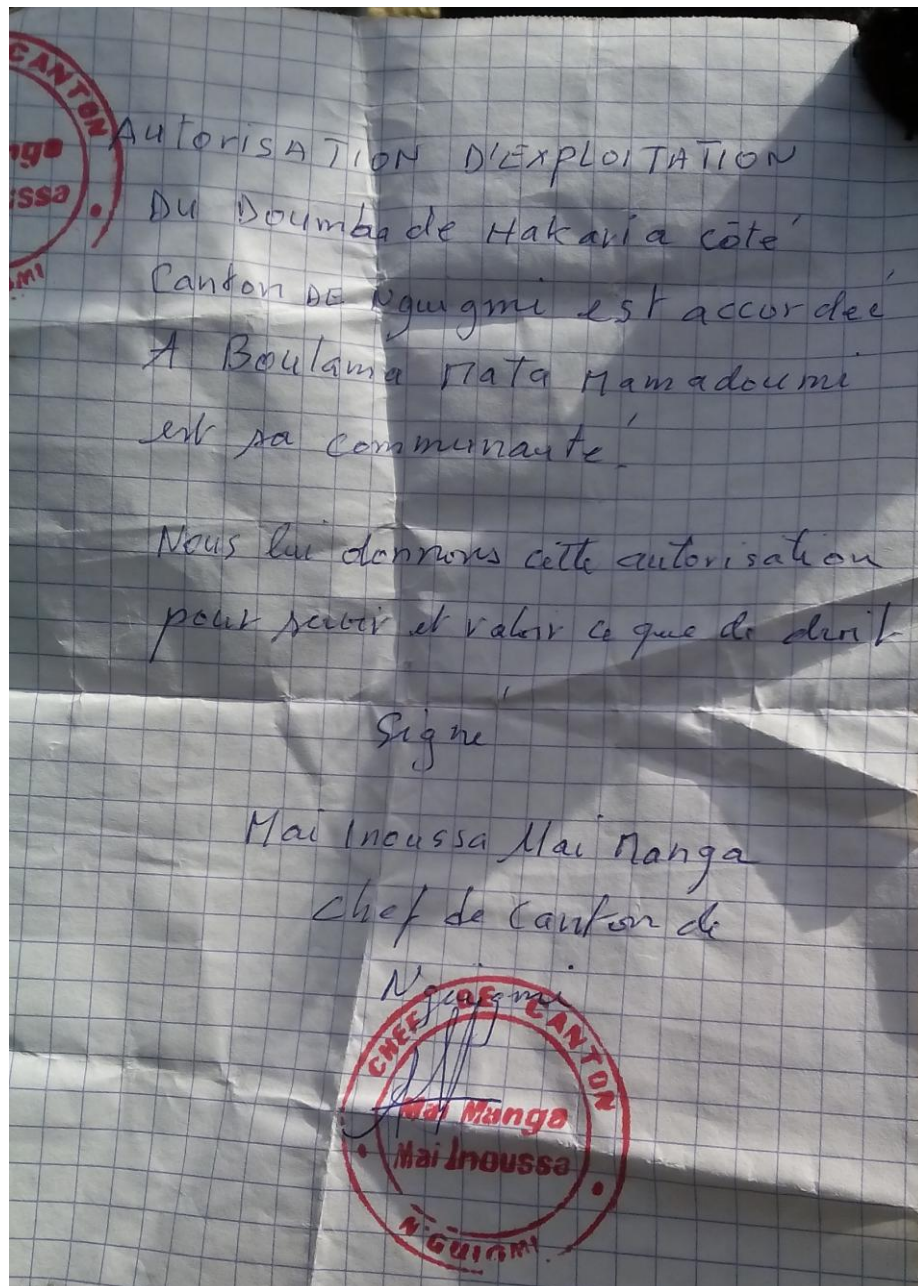 CANTON
nga
ussa
MI
AUTORISATION D'EXPLOITATION
DU Doumba de Hakaria côté
Canton DE Nguigmi est accordeé
A Boulama Mata Mamadoumi
est sa communauté.
Nous lui donnons cette autorisation
pour servir et valoir ce que de droit
Signé
Mai Inoussa Mai Manga
Chef de Canton de
Nguigmi
CHEF DE CANTON
Mai Manga
Mai Inoussa
N'GUIGMI